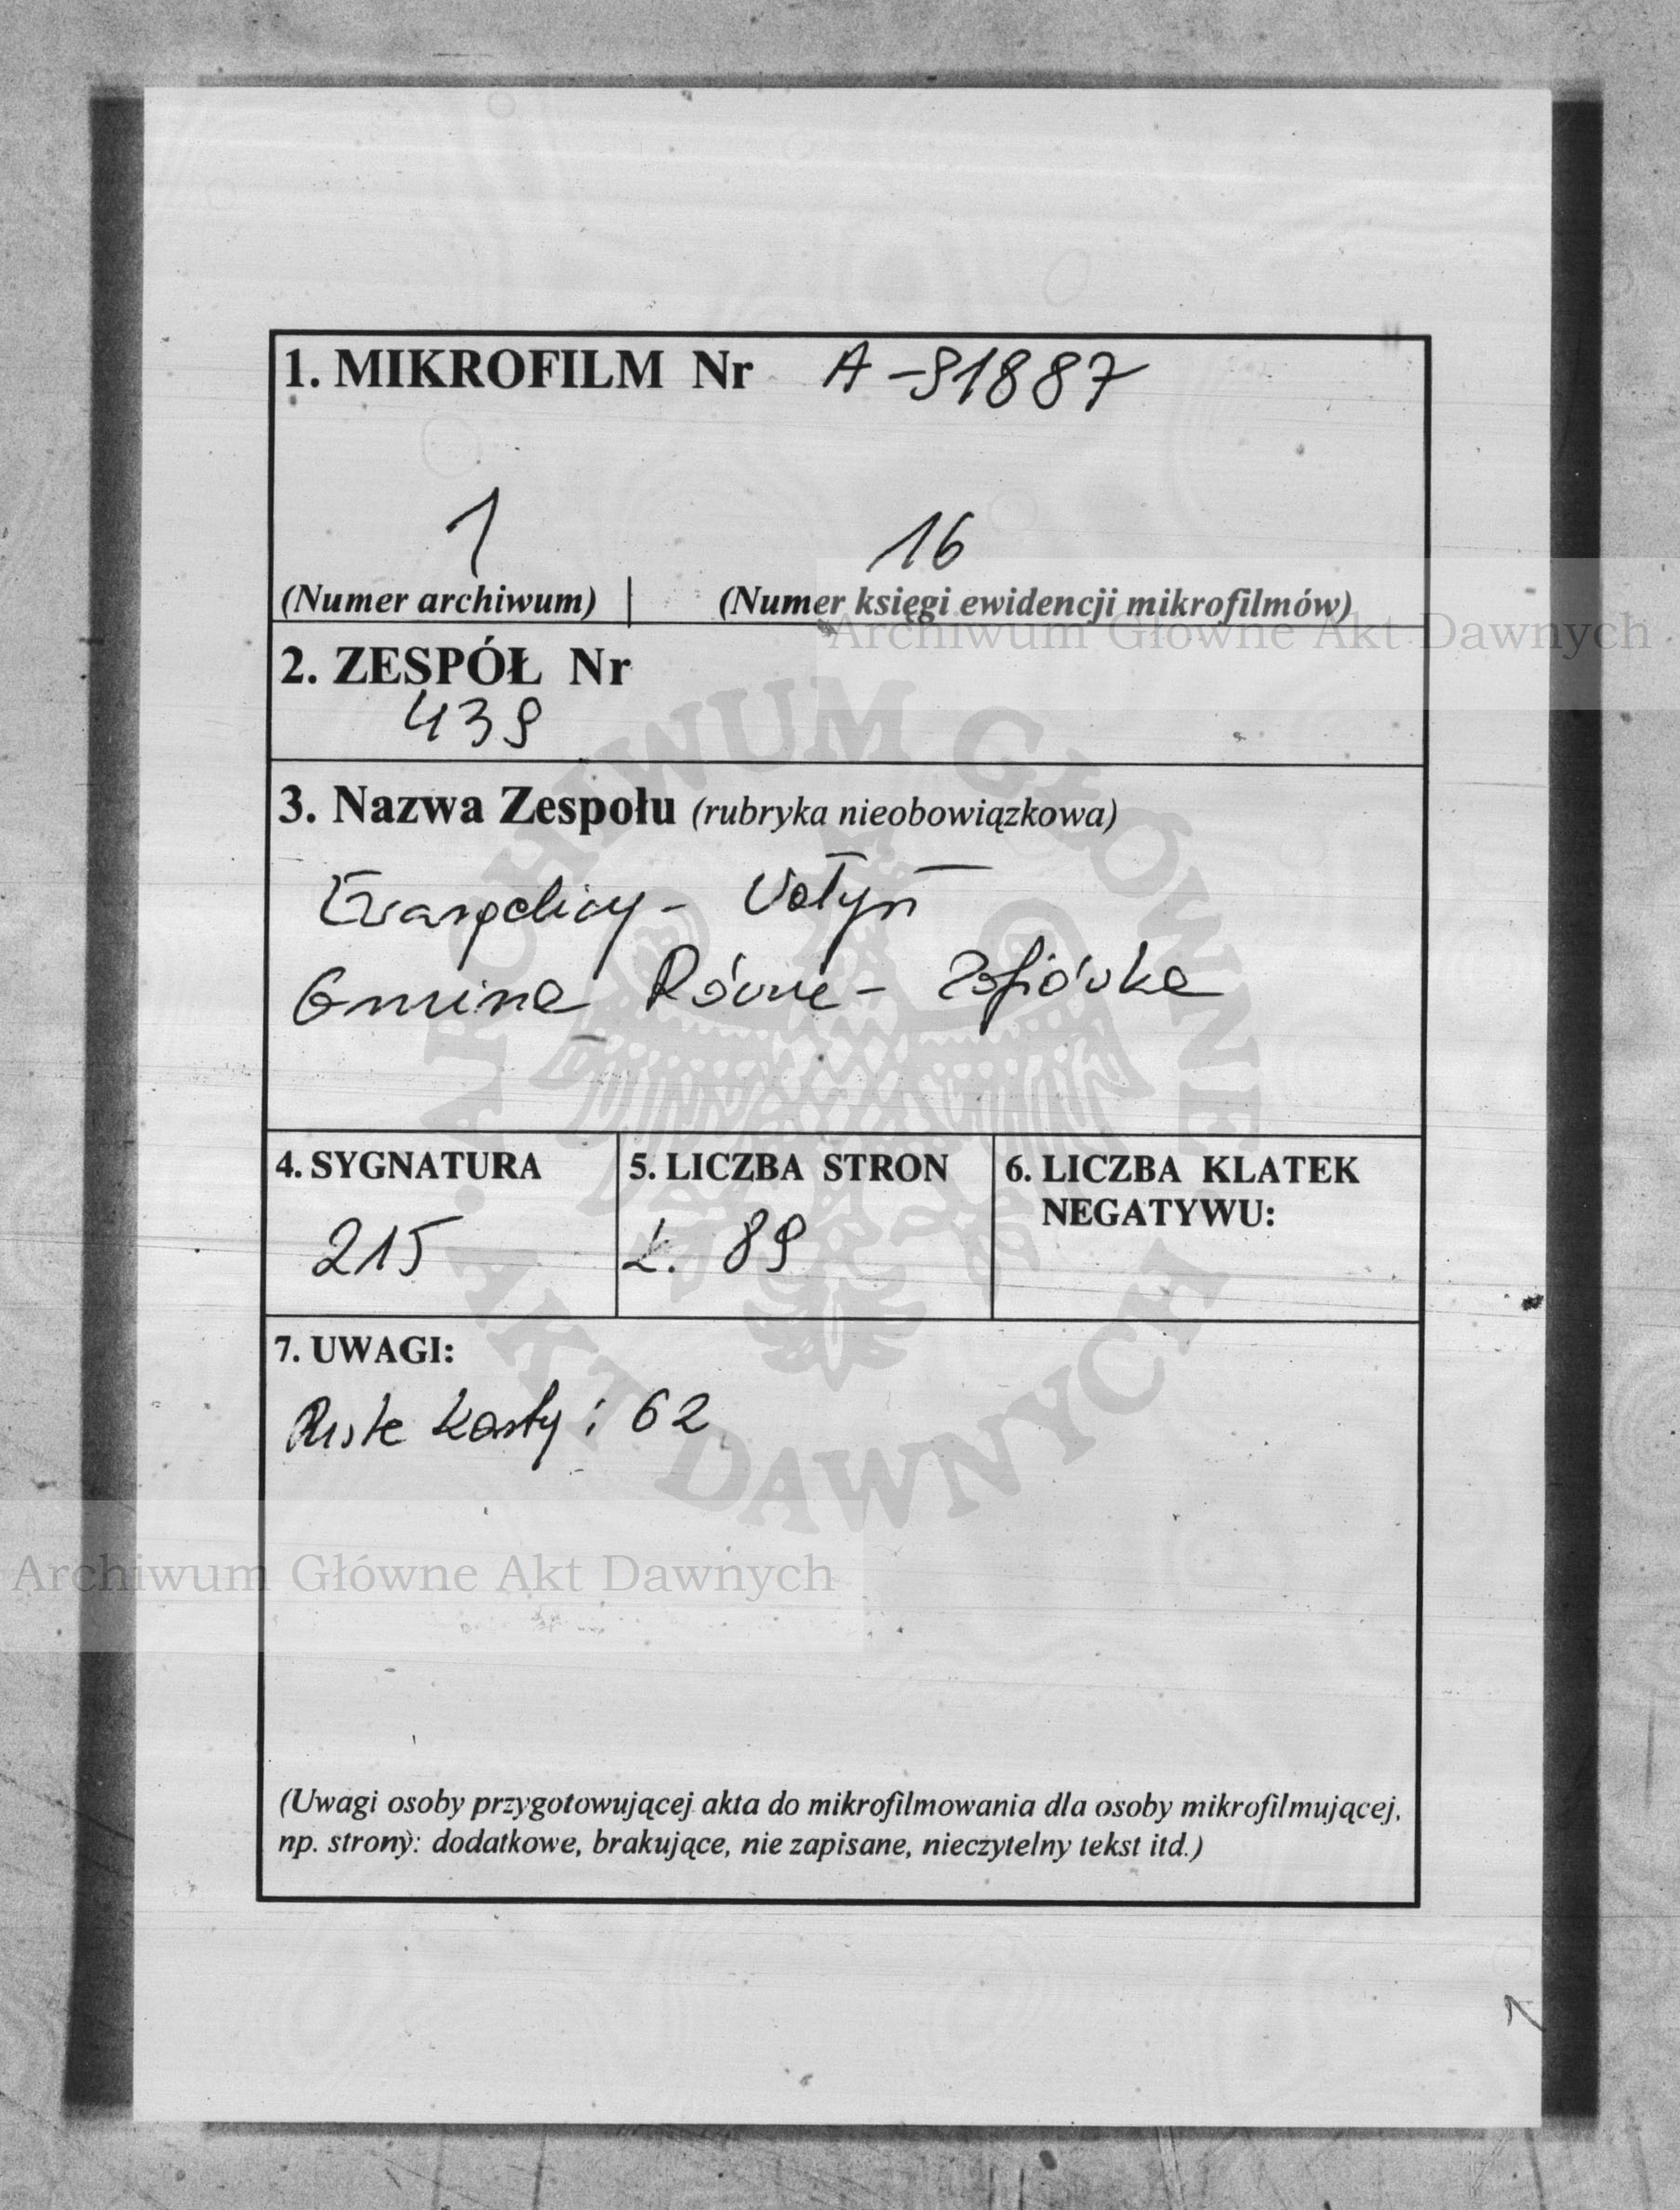 1. MIKROFILM Nr A-91887
1 16
(Numer archiwum) | (Numer księgi ewidencji mikrofilmów)
Archiwum Główne Akt Dawnych
2. ZESPÓŁ Nr
439
3. Nazwa Zespołu (rubryka nieobowiązkowa)
Ewangelicy - Wołyń
Gmina Równe - Zofiówka
4. SYGNATURA
215
5. LICZBA STRON
k. 89
6. LICZBA KLATEK
NEGATYWU:
7. UWAGI:
Puste karty: 62
ARCHIWUM GŁÓWNE AKT DAWNYCH
Archiwum Główne Akt Dawnych
(Uwagi osoby przygotowującej akta do mikrofilmowania dla osoby mikrofilmującej,
np. strony: dodatkowe, brakujące, nie zapisane, nieczytelny tekst itd.)
1